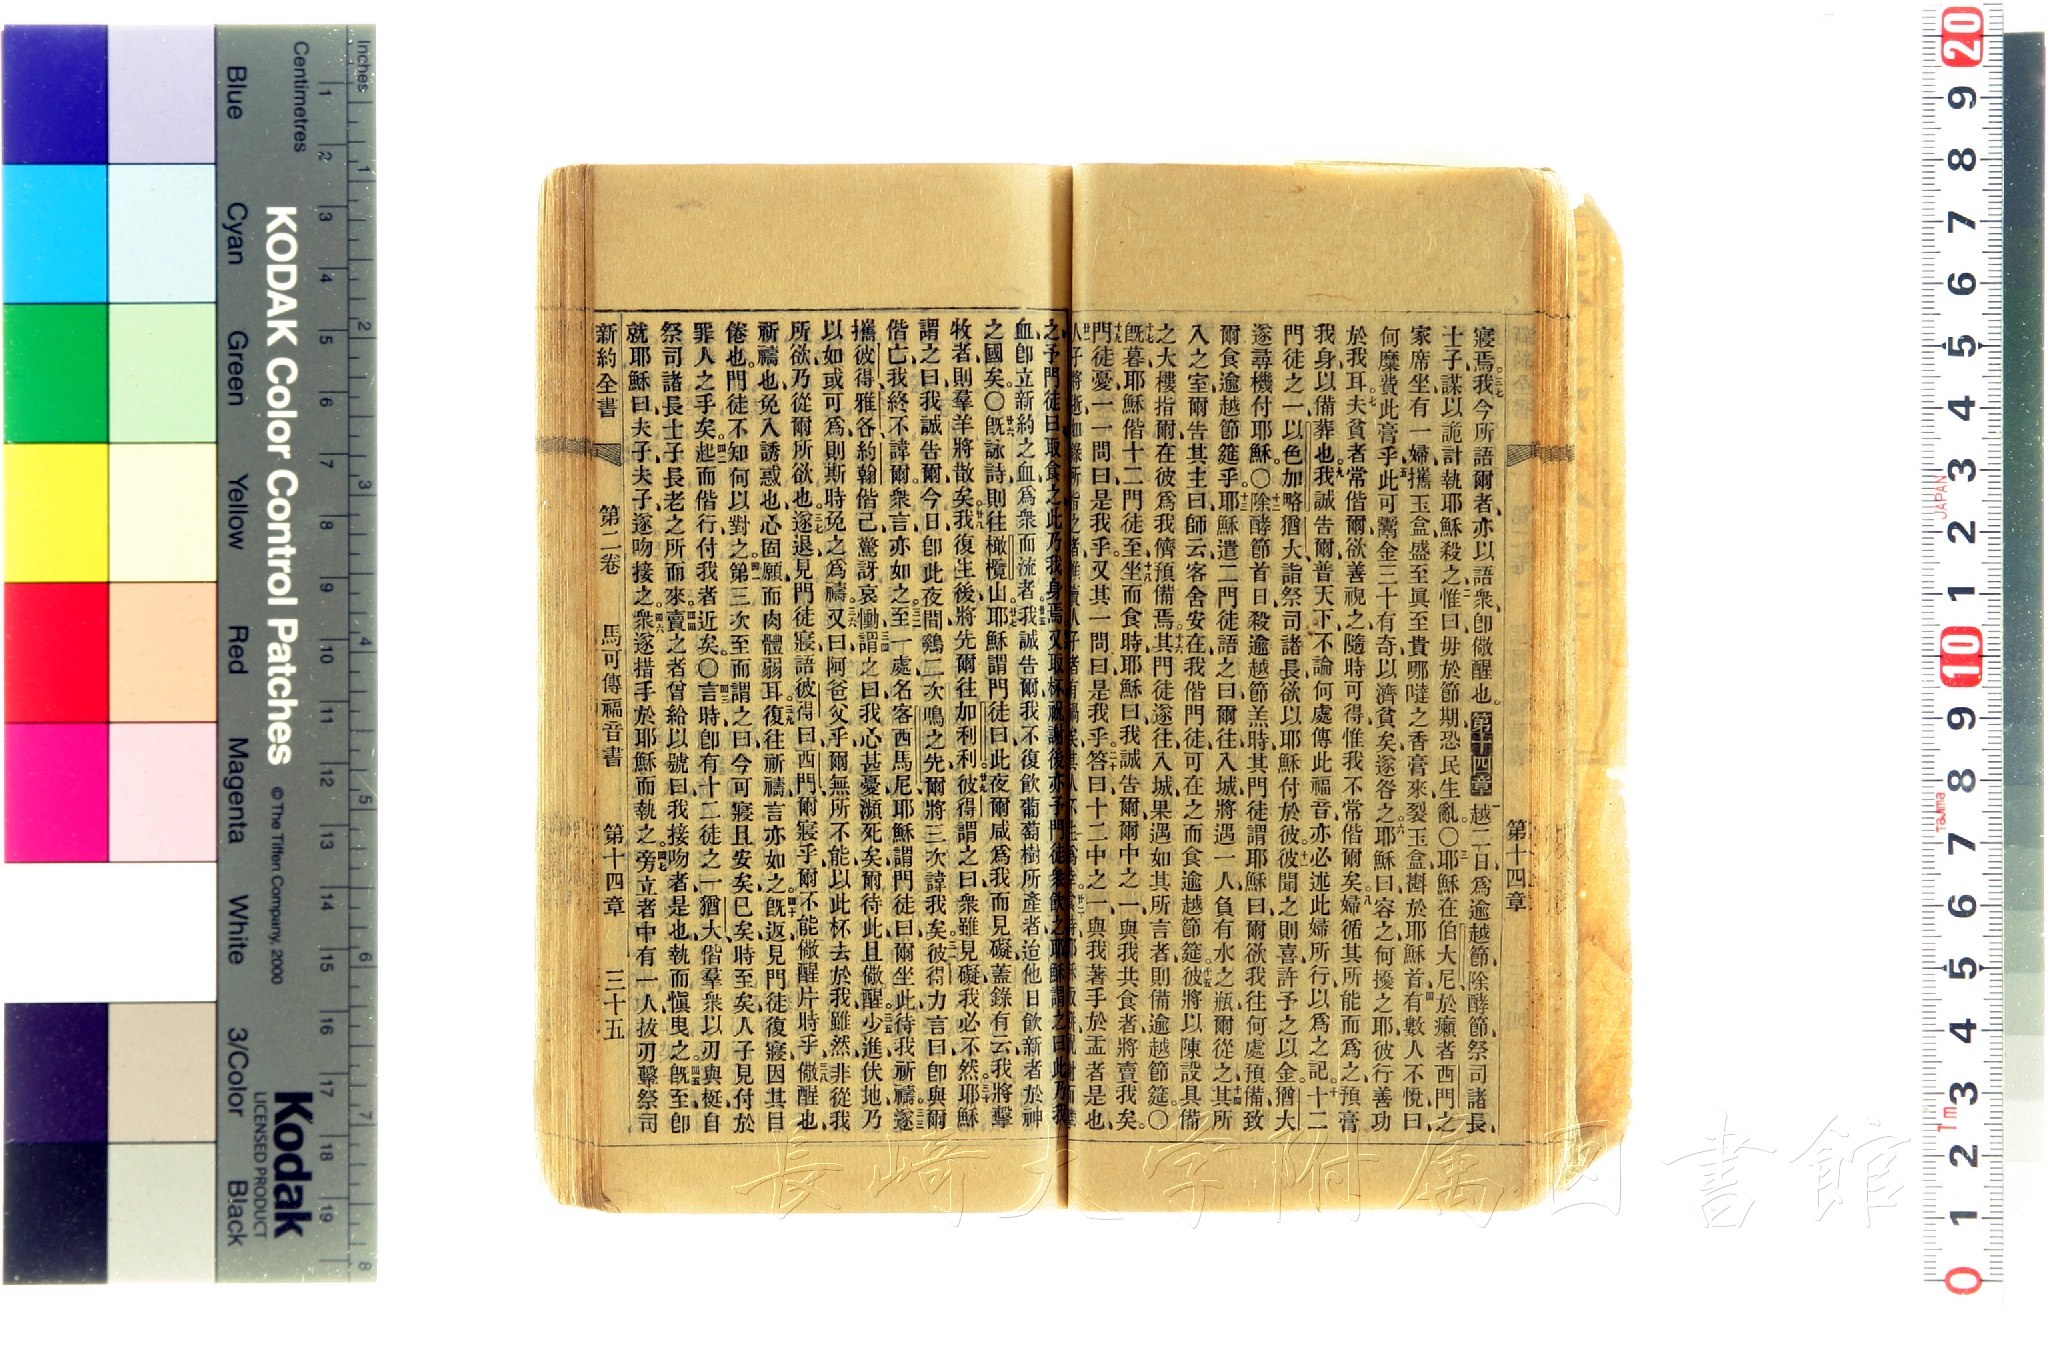 寢焉、我今所語爾者、亦以語衆、卽儆醒也。第十四章 越二日、爲逾越節、除酵節、祭司諸長、
士子、謀以詭計執耶穌殺之、惟曰、毋於節期、恐民生亂。〇耶穌在伯大尼、於癩者西門之
家席坐、有一婦、攜玉盒、盛至眞至貴哪噠之香膏來、裂玉盒、斟於耶穌首、有數人不悅曰、
何糜費此膏乎、此可鬻金三十有奇、以濟貧矣、遂咎之、耶穌曰、容之、何擾之耶、彼行善功
於我耳、夫貧者常偕爾、欲善視之、隨時可得、惟我不常偕爾矣、婦循其所能而爲之、預膏
我身、以備葬也、我誠告爾、普天下、不論何處傳此福音、亦必述此婦所行、以爲之記。十二
門徒之一、以色加畧猶大、詣祭司諸長、欲以耶穌付於彼、彼聞之則喜、許予之以金、猶大
遂尋機付耶穌。〇除酵節首日、殺逾越節羔時、其門徒謂耶穌曰、爾欲我往何處預備、致
爾食逾越節筵乎、耶穌遣二門徒、語之曰、爾往入城、將遇一人、負有水之瓶、爾從之、其所
入之室、爾告其主曰、師云、客舍安在、我偕門徒可在之而食逾越節筵、彼將以陳設具備
之大樓指爾、在彼爲我儕預備焉、其門徒遂往入城、果遇如其所言者、則備逾越節筵。〇
旣暮、耶穌偕十二門徒至、坐而食時、耶穌曰、我誠告爾、爾中之一、與我共食者、將賣我矣。
門徒憂、一一問曰、是我乎、又其一問曰、是我乎、答曰、十二中之一、與我著手於盂者是也、
之予門徒曰、取食之、此乃我身焉、又取杯祝謝後、亦予門徒、衆飲之、耶穌謂之曰、此乃我
血、卽立新約之血、爲衆而流者、我誠告爾、我不復飲葡萄樹所產者、迨他日飲新者於神
之國矣。〇旣詠詩、則往橄欖山、耶穌謂門徒曰、此夜爾咸爲我而見礙、蓋錄有云、我將擊
牧者、則羣羊將散矣、我復生後、將先爾往加利利、彼得謂之曰、衆雖見礙、我必不然、耶穌
謂之曰、我誠告爾、今日、卽此夜間、鷄二次鳴之先、爾將三次諱我矣、彼得力言曰、卽與爾
偕亡、我終不諱爾、衆言亦如之、至一處、名客西馬尼、耶穌謂門徒曰、爾坐此、待我祈禱、遂
攜彼得雅各約翰偕己、驚訝哀慟、謂之曰、我心甚憂、瀕死矣、爾待此且儆醒、少進伏地、乃
以如或可爲、則斯時免之爲禱、又曰、阿爸父乎、爾無所不能、以此杯去於我、雖然、非從我
所欲、乃從爾所欲也、遂退、見門徒寢、語彼得曰、西門、爾寢乎、爾不能儆醒片時乎、儆醒也、
祈禱也、免入誘惑也、心固願、而肉體弱耳、復往祈禱、言亦如之、旣返、見門徒復寢、因其目
倦也、門徒不知何以對之、第三次至而謂之曰、今可寢且安矣、已矣、時至矣、人子見付於
罪人之手矣、起而偕行、付我者近矣。〇言時、卽有十二徒之一、猶大、偕羣衆以刃與梃、自
祭司諸長士子長老之所而來、賣之者曾給以號曰、我接吻者是也、執而愼曳之、旣至、卽
就耶穌曰、夫子、夫子、遂吻接之、衆遂措手於耶穌而執之、旁立者中有一人、拔刃擊祭司
新約全書 第二卷 馬可傳福音書 第十四章 三十五
第十四章
長崎大学附属図書館
KODAK Color Control Patches
© The Tiffen Company, 2000
Kodak
LICENSED PRODUCT
Inches
Centimetres
Blue
Cyan
Green
Yellow
Red
Magenta
White
3/Color
Black
JAPAN
Tajima